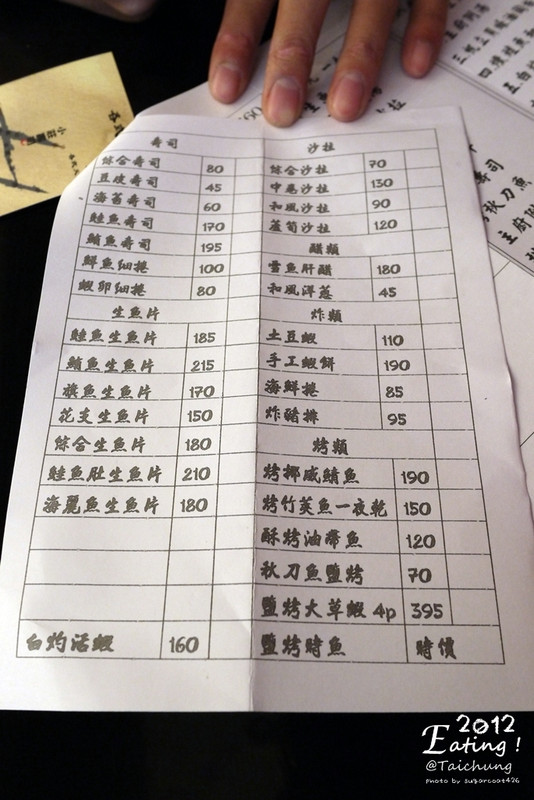 寿司
綜合寿司 80
豆皮寿司 45
海苔寿司 60
鮭魚寿司 170
鮪魚寿司 195
鮮魚細捲 100
蝦卵細捲 80
生魚片
鮭魚生魚片 185
鮪魚生魚片 215
旗魚生魚片 170
花支生魚片 150
綜合生魚片 180
鮭魚肚生魚片 210
海麗魚生魚片 180
白灼活蝦 160
沙拉
綜合沙拉 70
中卷沙拉 130
和風沙拉 90
蘆筍沙拉 120
醋類
雪魚肝醋 180
和風洋蔥 45
炸類
土豆蝦 110
手工蝦餅 190
海鮮捲 85
炸豬排 95
烤類
烤挪威鯖魚 190
烤竹莢魚一夜乾 150
酥烤油帶魚 120
秋刀魚鹽烤 70
鹽烤大草蝦 4p 395
鹽烤時魚 時價
2012
Eating !
@Taichung
photo by sugarcoat426